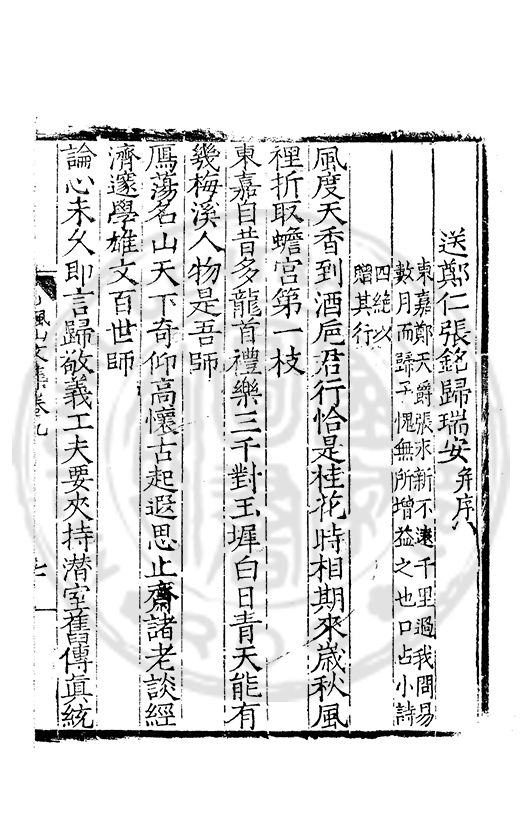 送鄭仁張銘歸瑞安并序
東嘉鄭天爵張求新不遠千里過我問易
數月而歸予愧無所增益之也口占小詩
四絶以
贈其行
風度天香到酒巵君行恰是桂花時相期來歲秋風
裡折取蟾宮第一枝
東嘉自昔多龍首禮樂三千對玉墀白日青天能有
幾梅溪人物是吾師
鴈蕩名山天下奇仰高懷古起遐思止齋諸老談經
濟邃學雄文百世師
論心未久即言歸敬義工夫要夾持潜室舊傳眞統
楓山文集卷九
七